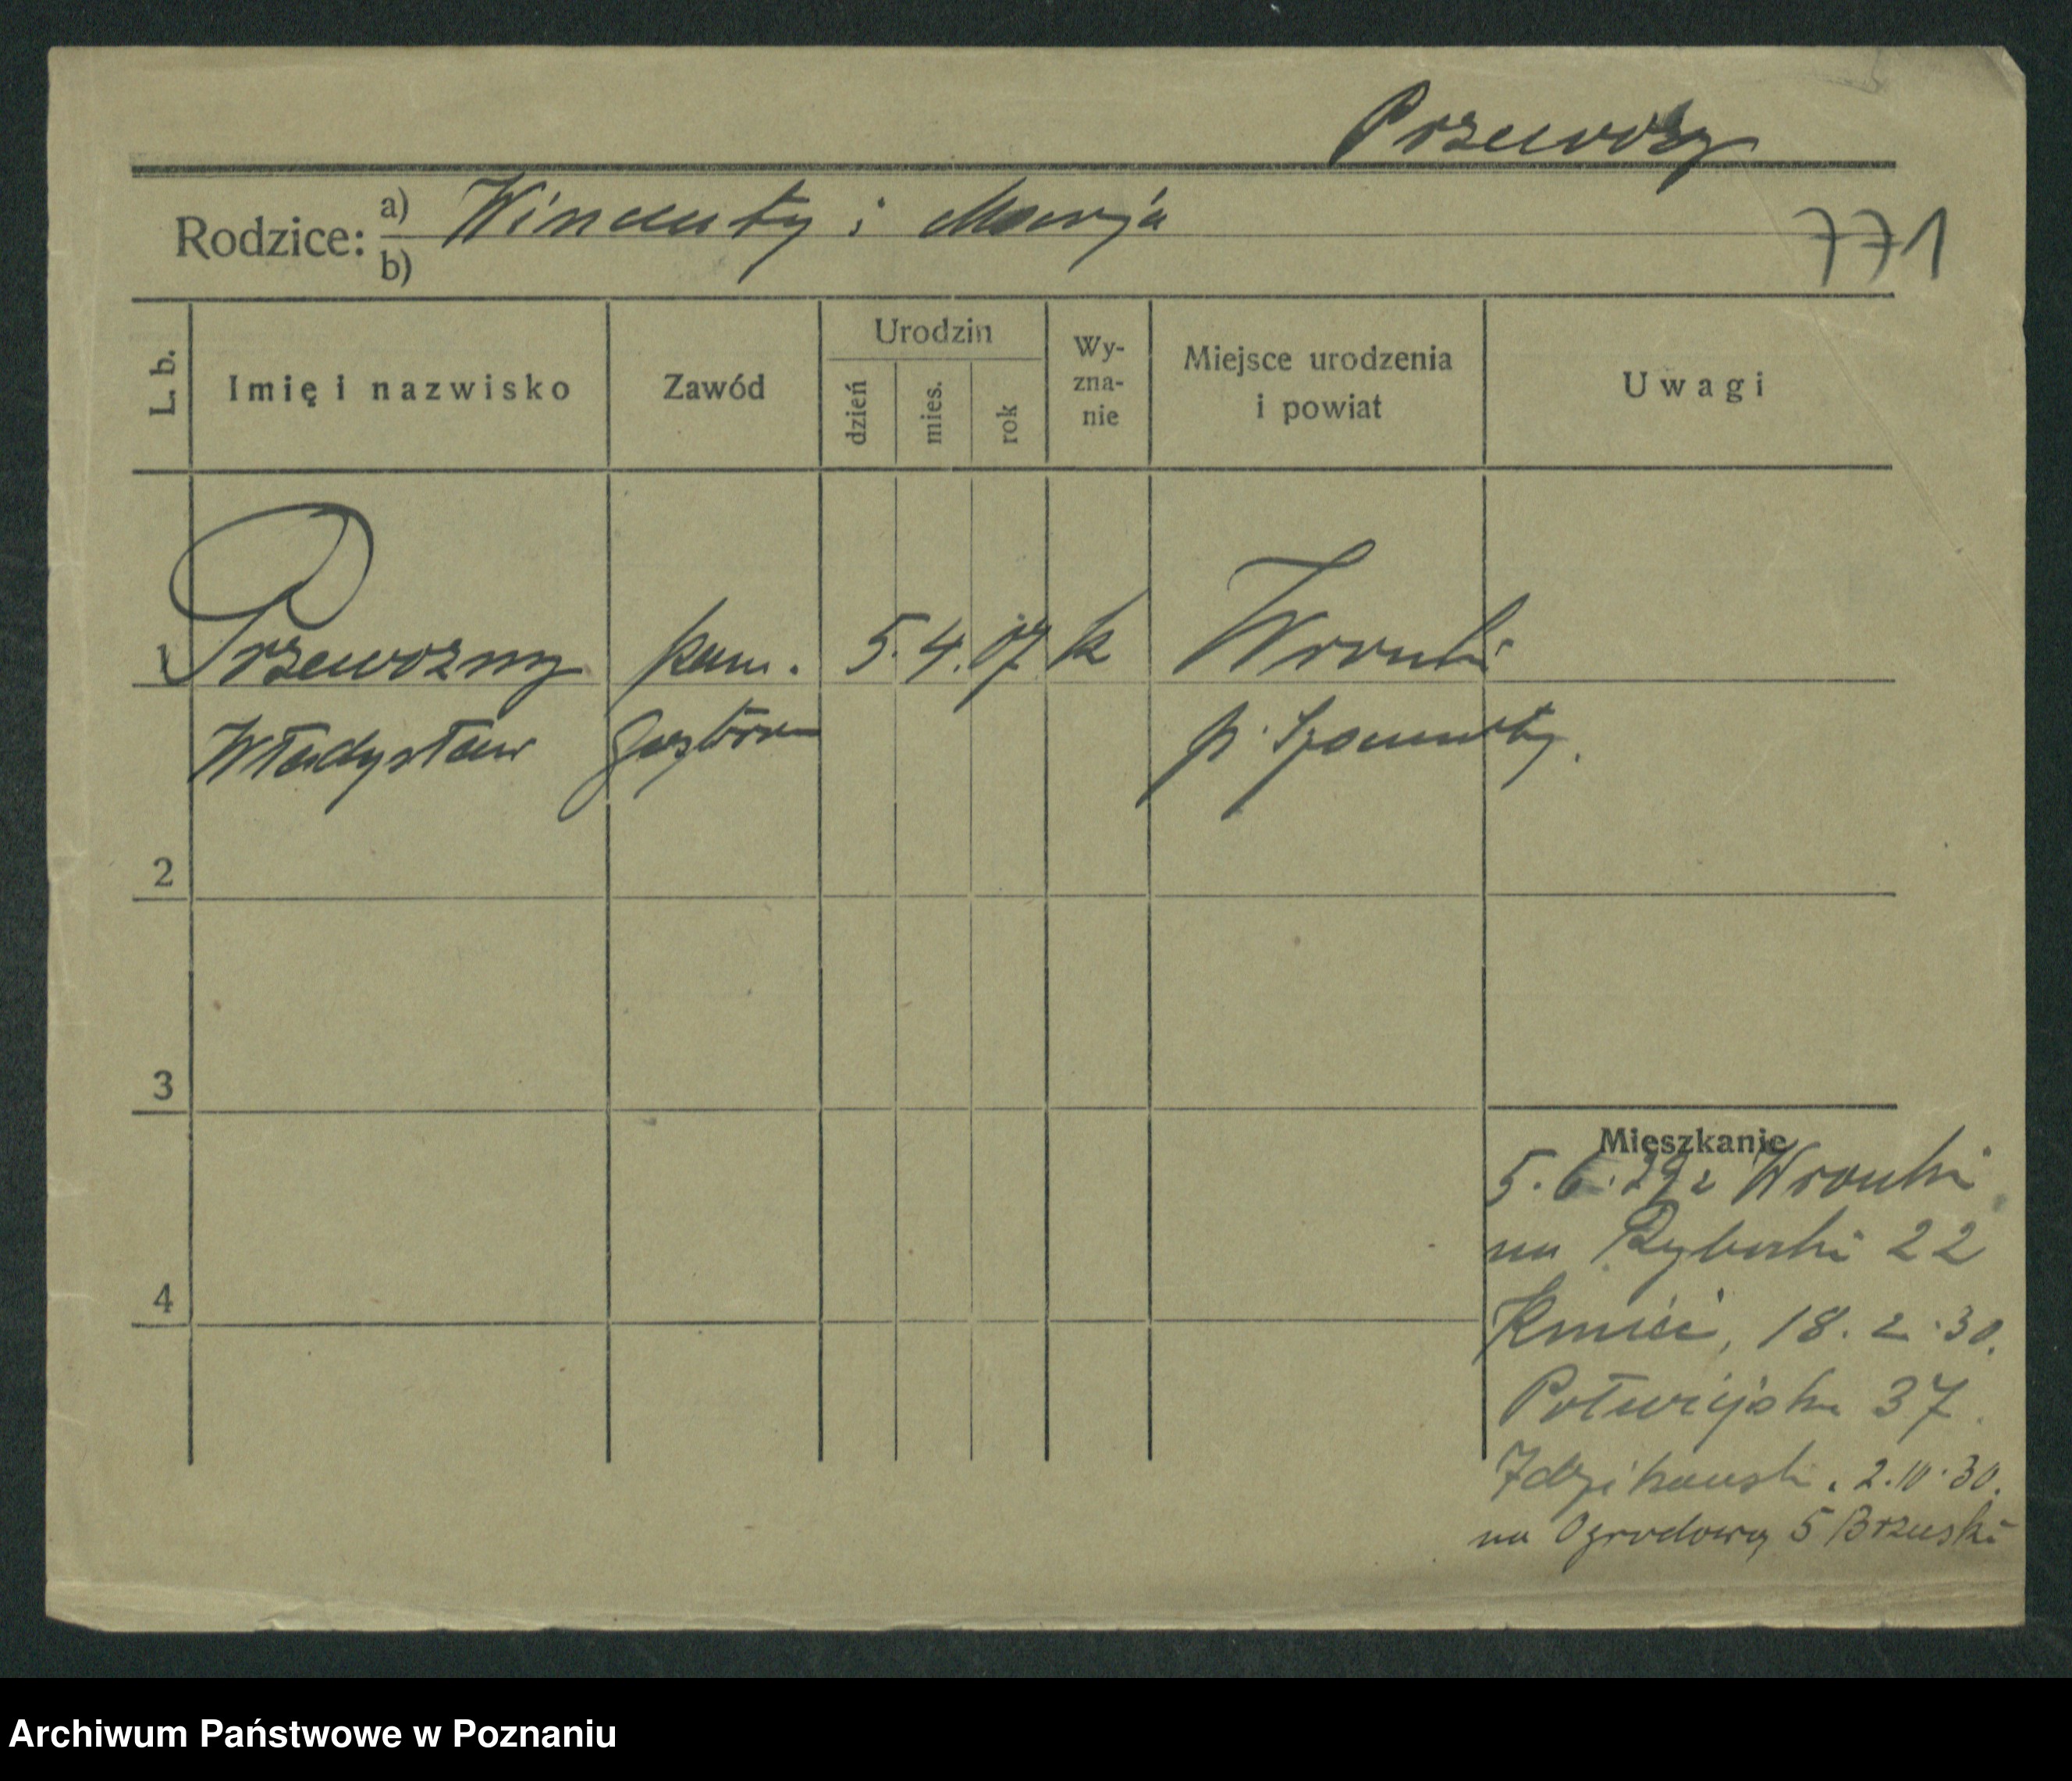 Przewoźy
Rodzice: a) Wincenty i Marija
b)
771
L. b.
Imię i nazwisko
Zawód
Urodzin
dzień
mies.
rok
Wy-
zna-
nie
Miejsce urodzenia
i powiat
Uwagi
1 Przewozny 5. 4. 07 k Wronki
Władysław p. Szamotuły.
2
3
4
Mieszkanie
5. 6. 29 z Wronki
na Rybaki 22
18. 2. 30.
37.
2. 10. 30.
na Ogrodową 5 Brzeski
Archiwum Państwowe w Poznaniu